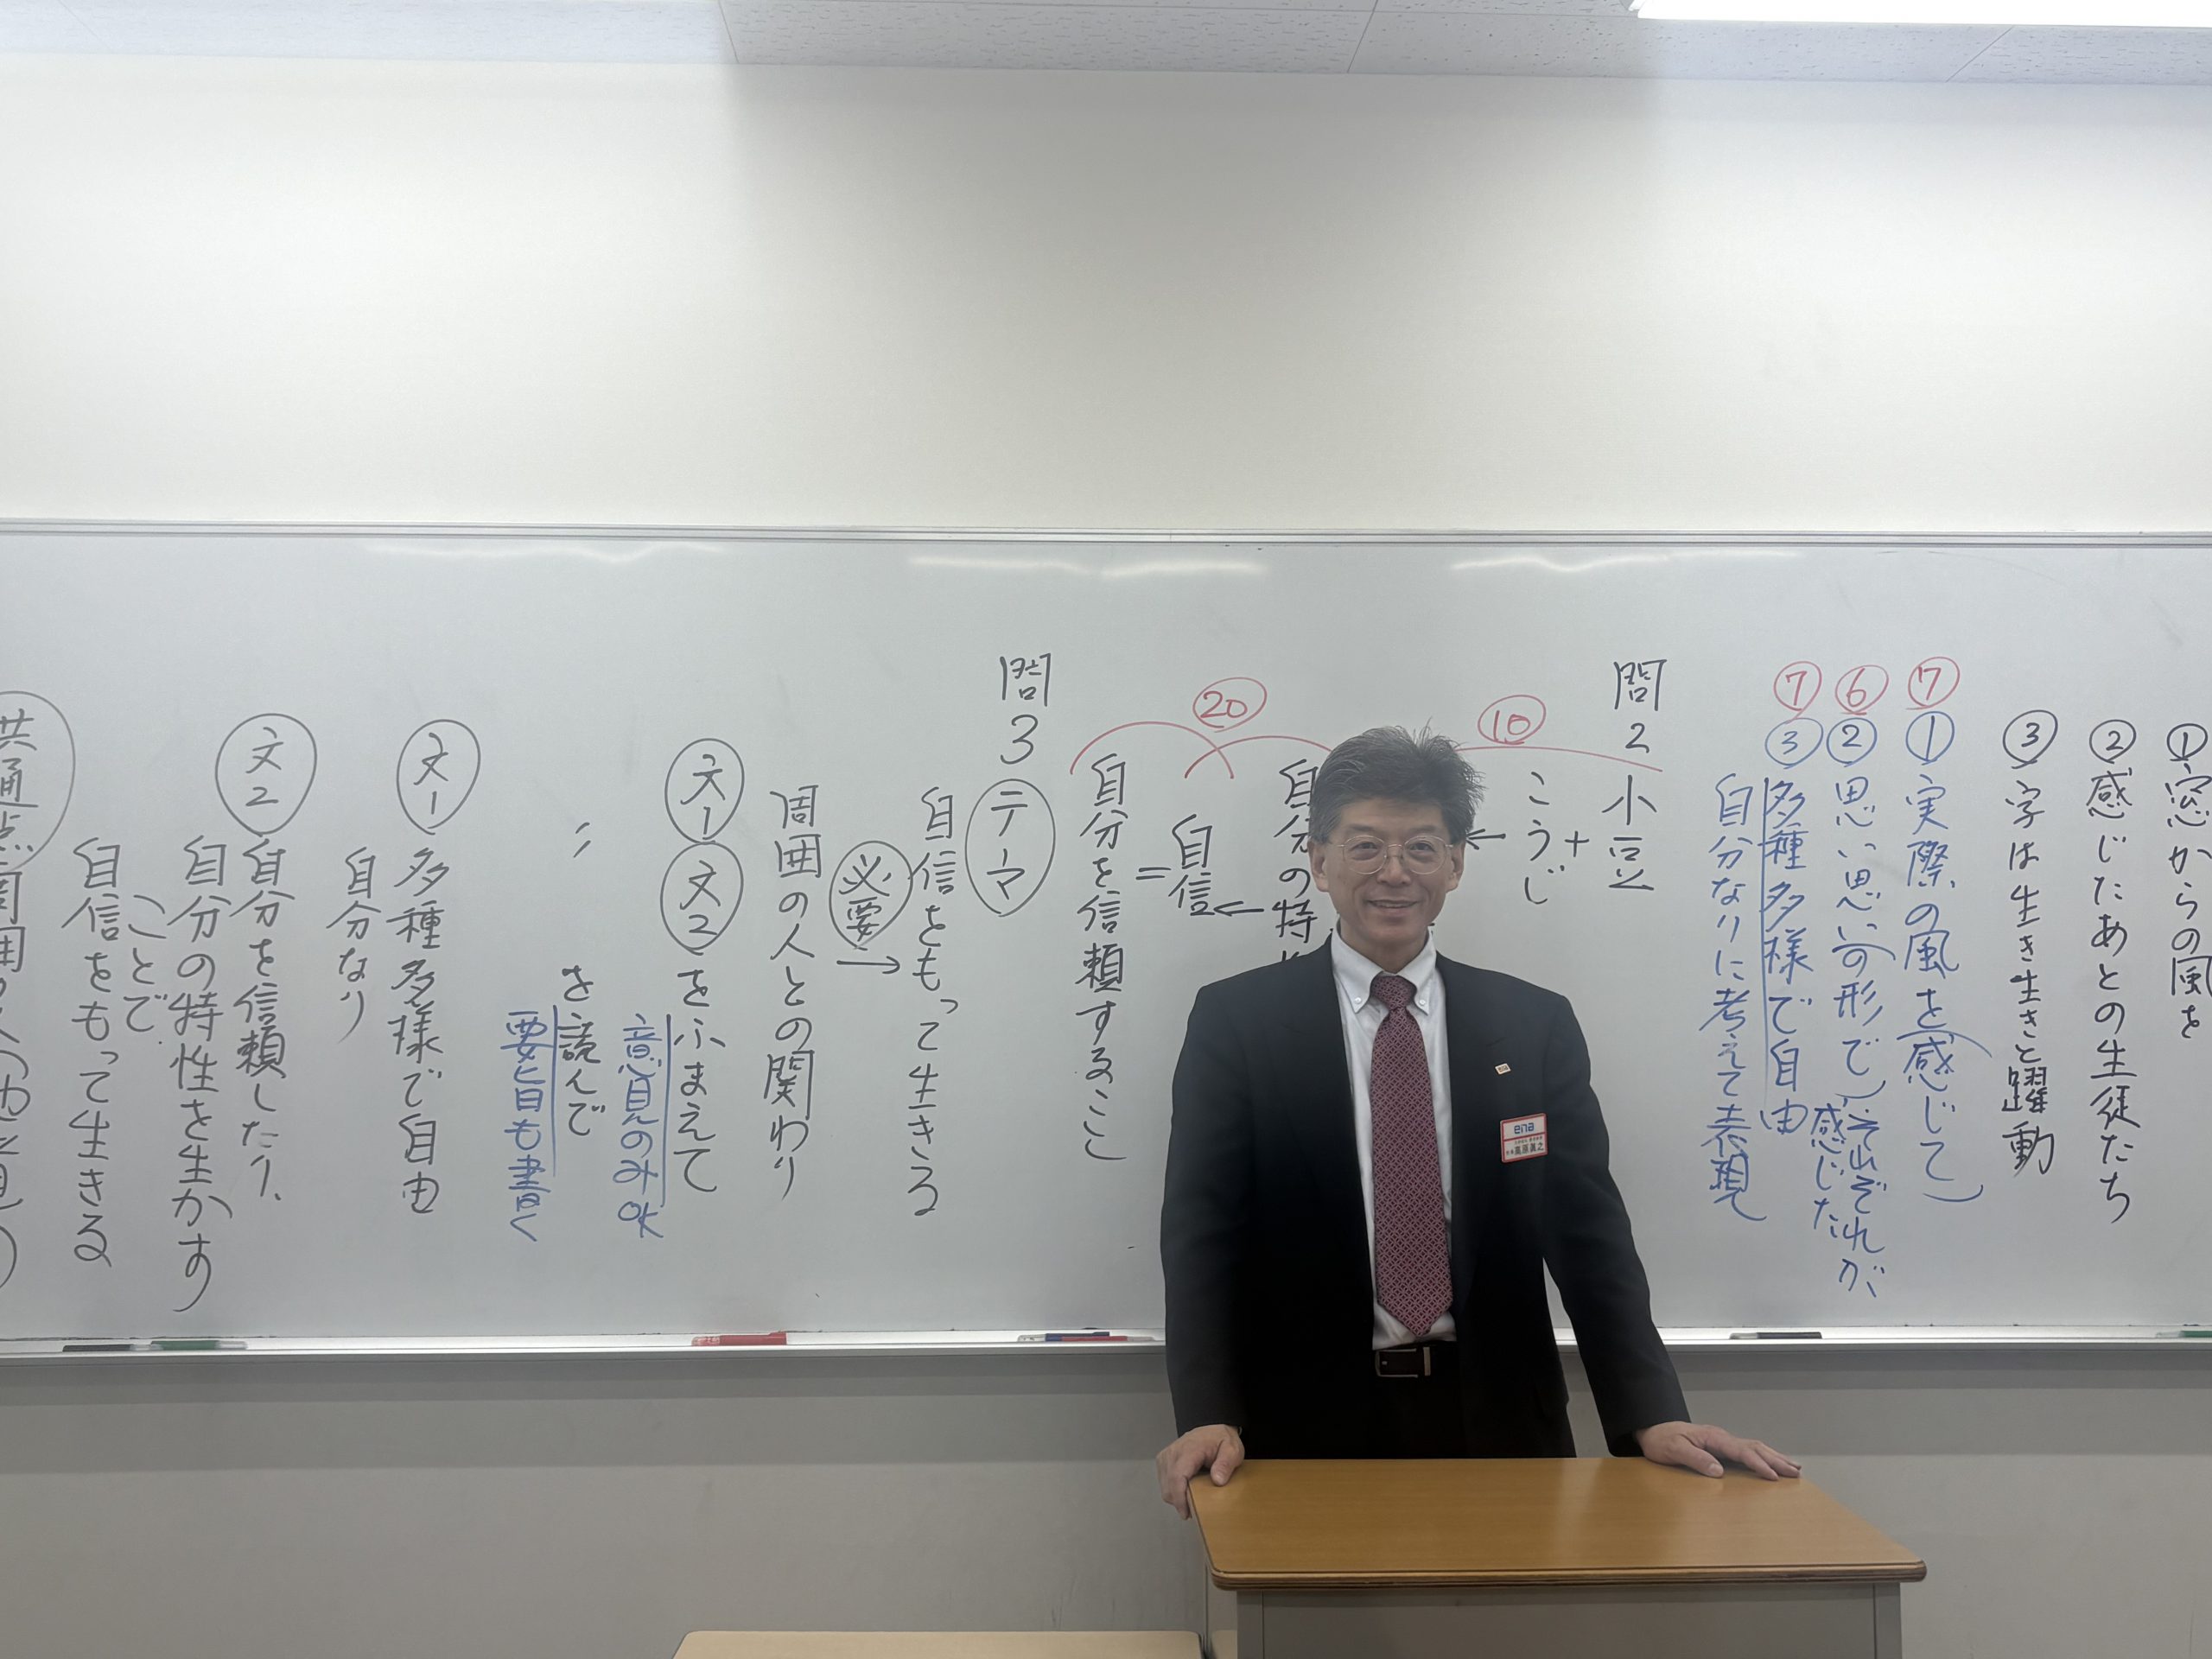 ①窓からの風を
②感じたあとの生徒たち
③字は生き生きと躍動
⑦①実際の風を(感じて)
⑥②思い思い(の形で)それぞれが
感じた
⑦③多種多様で自由
自分なりに考えて表現
問2 小豆
+
こうじ
←
10
自分の特
20
←
自信
=
自分を信頼すること
問3
テーマ
自信をもって生きる
必要
→
周囲の人との関わり
文1 文2 をふまえて
意見のみOK
〃 を読んで
要旨も書く
文1 多種多様で自由
自分なり
文2 自分を信頼したり、
自分の特性を生かす
ことで
自信をもって生きる
共通点 周囲の人
ena